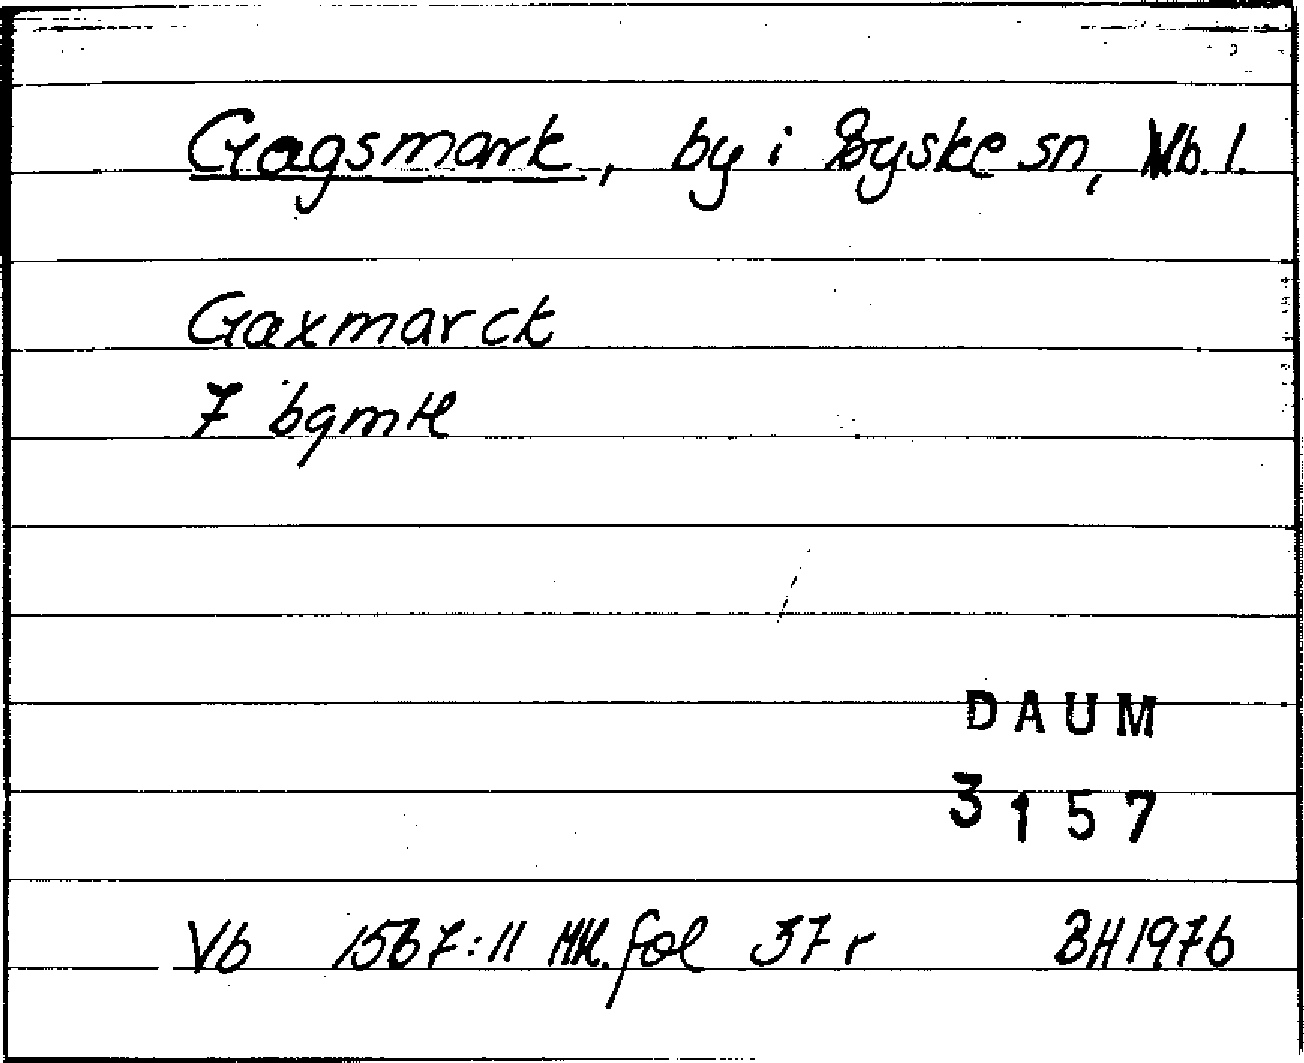 Gagsmark, by i Byske sn, Vb. l.
Gaxmarck
7 bgmH
DAUM
3157
Vb 1567:11 MH. fol 37 r BH 1976